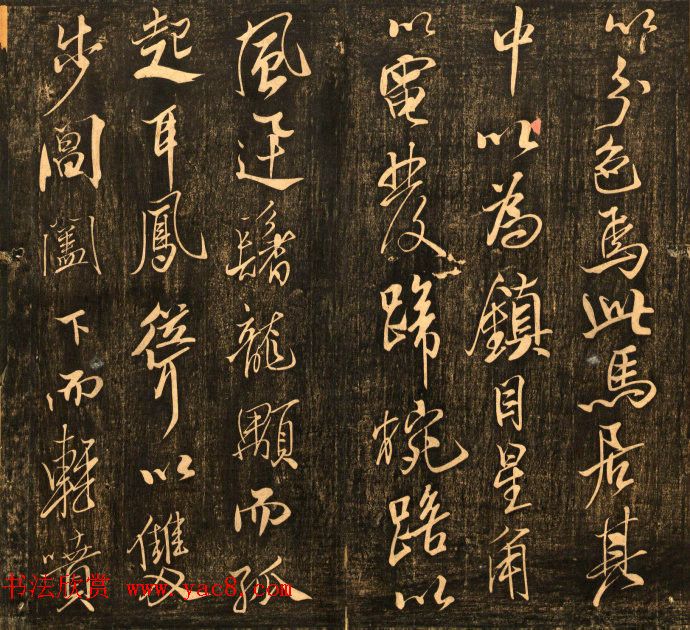 以分色焉此馬居其
中以為鎮目星角
以電發蹄椀踣以
風迅鬐龍顒而孤
起耳鳳聳以雙
步閶闔下而噴
书法欣赏 www.yac8.com